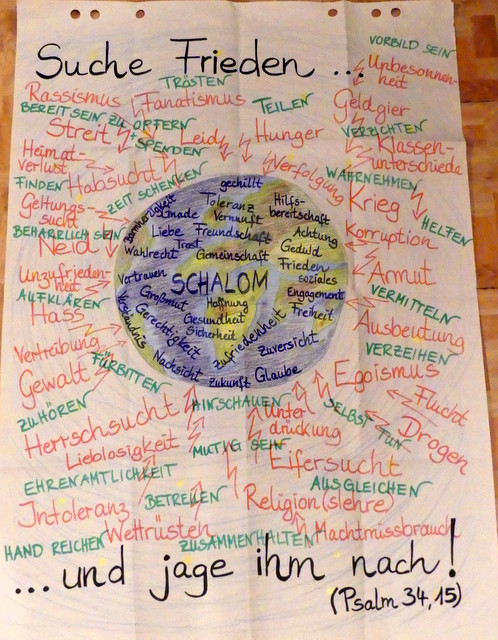 Suche Frieden ...
VORBILD SEIN
TRÖSTEN
Unbesonnen-
heit
Rassismus
Fanatismus
TEILEN
Geldgier
BEREIT SEIN ZU OPFERN
VERZICHTEN
Streit
Leid
Hunger
Klassen-
unterschiede
SPENDEN
Heimat-
verlust
Verfolgung
WAHRNEHMEN
FINDEN
Habsucht
ZEIT SCHENKEN
Krieg
Geltungs-
sucht
HELFEN
BEHARRLICH SEIN
Korruption
Neid
Unzufrieden-
heit
Armut
AUFKLÄREN
VERMITTELN
Hass
Ausbeutung
Vertreibung
VERZEIHEN
FÜRBITTEN
Gewalt
Egoismus
ZUHÖREN
HINSCHAUEN
SELBST TUN
Flucht
Herrschsucht
Unter
drückung
Drogen
Lieblosigkeit
MUTIG SEIN
Eifersucht
EHRENAMTLICHKEIT
AUSGLEICHEN
Intoleranz
BETREUEN
Religion(slehre)
HAND REICHEN
Wettrüsten
ZUSAMMENHALTEN
Machtmissbrauch
gechillt
Barmherzigkeit
Toleranz
Hilfs-
bereitschaft
Gnade
Vernunft
Liebe
Freundschaft
Achtung
Trost
Geduld
Wahlrecht
Gemeinschaft
Frieden
Vertrauen
SCHALOM
soziales
Engagement
Großmut
Hoffnung
Freiheit
Verständnis
Gerechtigkeit
Gesundheit
Sicherheit
Zufriedenheit
Zuversicht
Nachsicht
Zukunft
Glaube
... und jage ihm nach!
(Psalm 34,15)